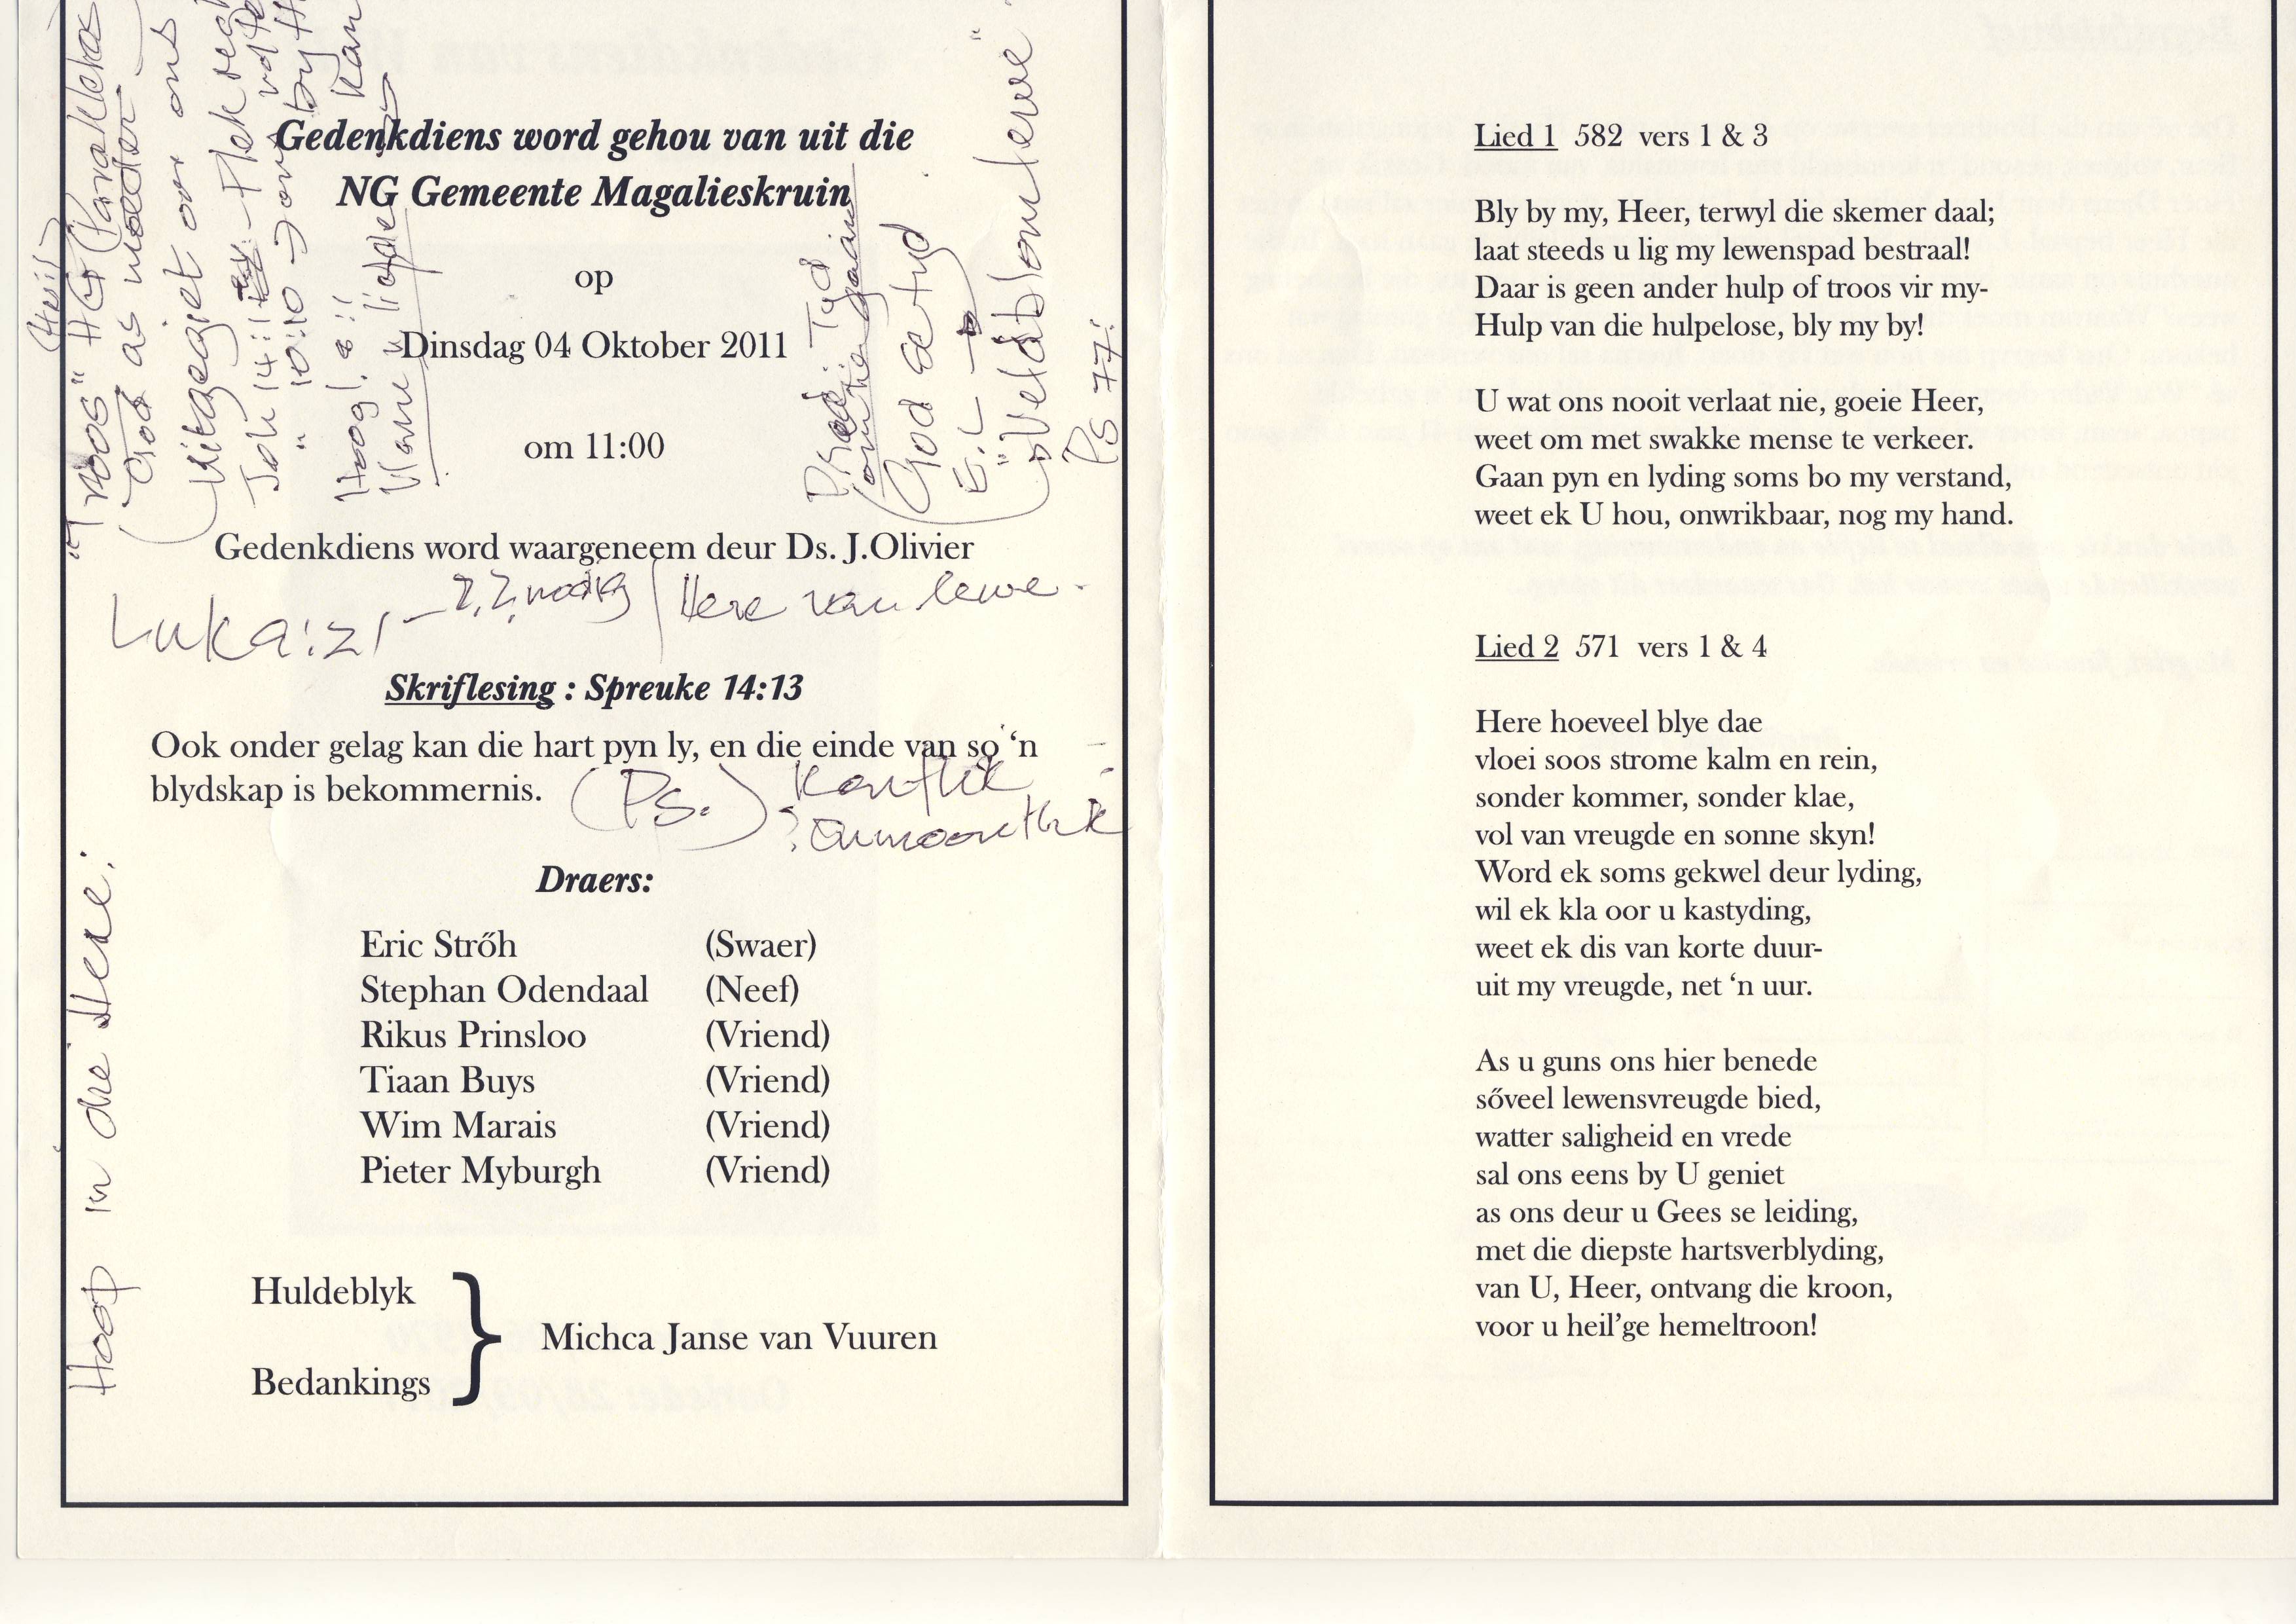 Gedenkdiens word gehou van uit die
NG Gemeente Magalieskruin
op
Dinsdag 04 Oktober 2011
om 11:00
Gedenkdiens word waargeneem deur Ds. J.Olivier
Here van lewe.
Skriflesing : Spreuke 14:13
Ook onder gelag kan die hart pyn ly, en die einde van so ‘n
blydskap is bekommernis.
(Ps.)
Draers:
Eric Strőh (Swaer)
Stephan Odendaal (Neef)
Rikus Prinsloo (Vriend)
Tiaan Buys (Vriend)
Wim Marais (Vriend)
Pieter Myburgh (Vriend)
Huldeblyk
Michca Janse van Vuuren
Bedankings
Hoop in die Here!
"Troos" HG (Parakletos
God as moeder
Uitgegiet oor ons
Joh 14:1
" 10:10
Hoog!
God se tyd
"Veldblomlewe"
Ps 77:
Lied 1 582 vers 1 & 3
Bly by my, Heer, terwyl die skemer daal;
laat steeds u lig my lewenspad bestraal!
Daar is geen ander hulp of troos vir my-
Hulp van die hulpelose, bly my by!
U wat ons nooit verlaat nie, goeie Heer,
weet om met swakke mense te verkeer.
Gaan pyn en lyding soms bo my verstand,
weet ek U hou, onwrikbaar, nog my hand.
Lied 2 571 vers 1 & 4
Here hoeveel blye dae
vloei soos strome kalm en rein,
sonder kommer, sonder klae,
vol van vreugde en sonne skyn!
Word ek soms gekwel deur lyding,
wil ek kla oor u kastyding,
weet ek dis van korte duur-
uit my vreugde, net ‘n uur.
As u guns ons hier benede
sőveel lewensvreugde bied,
watter saligheid en vrede
sal ons eens by U geniet
as ons deur u Gees se leiding,
met die diepste hartsverblyding,
van U, Heer, ontvang die kroon,
voor u heil’ge hemeltroon!